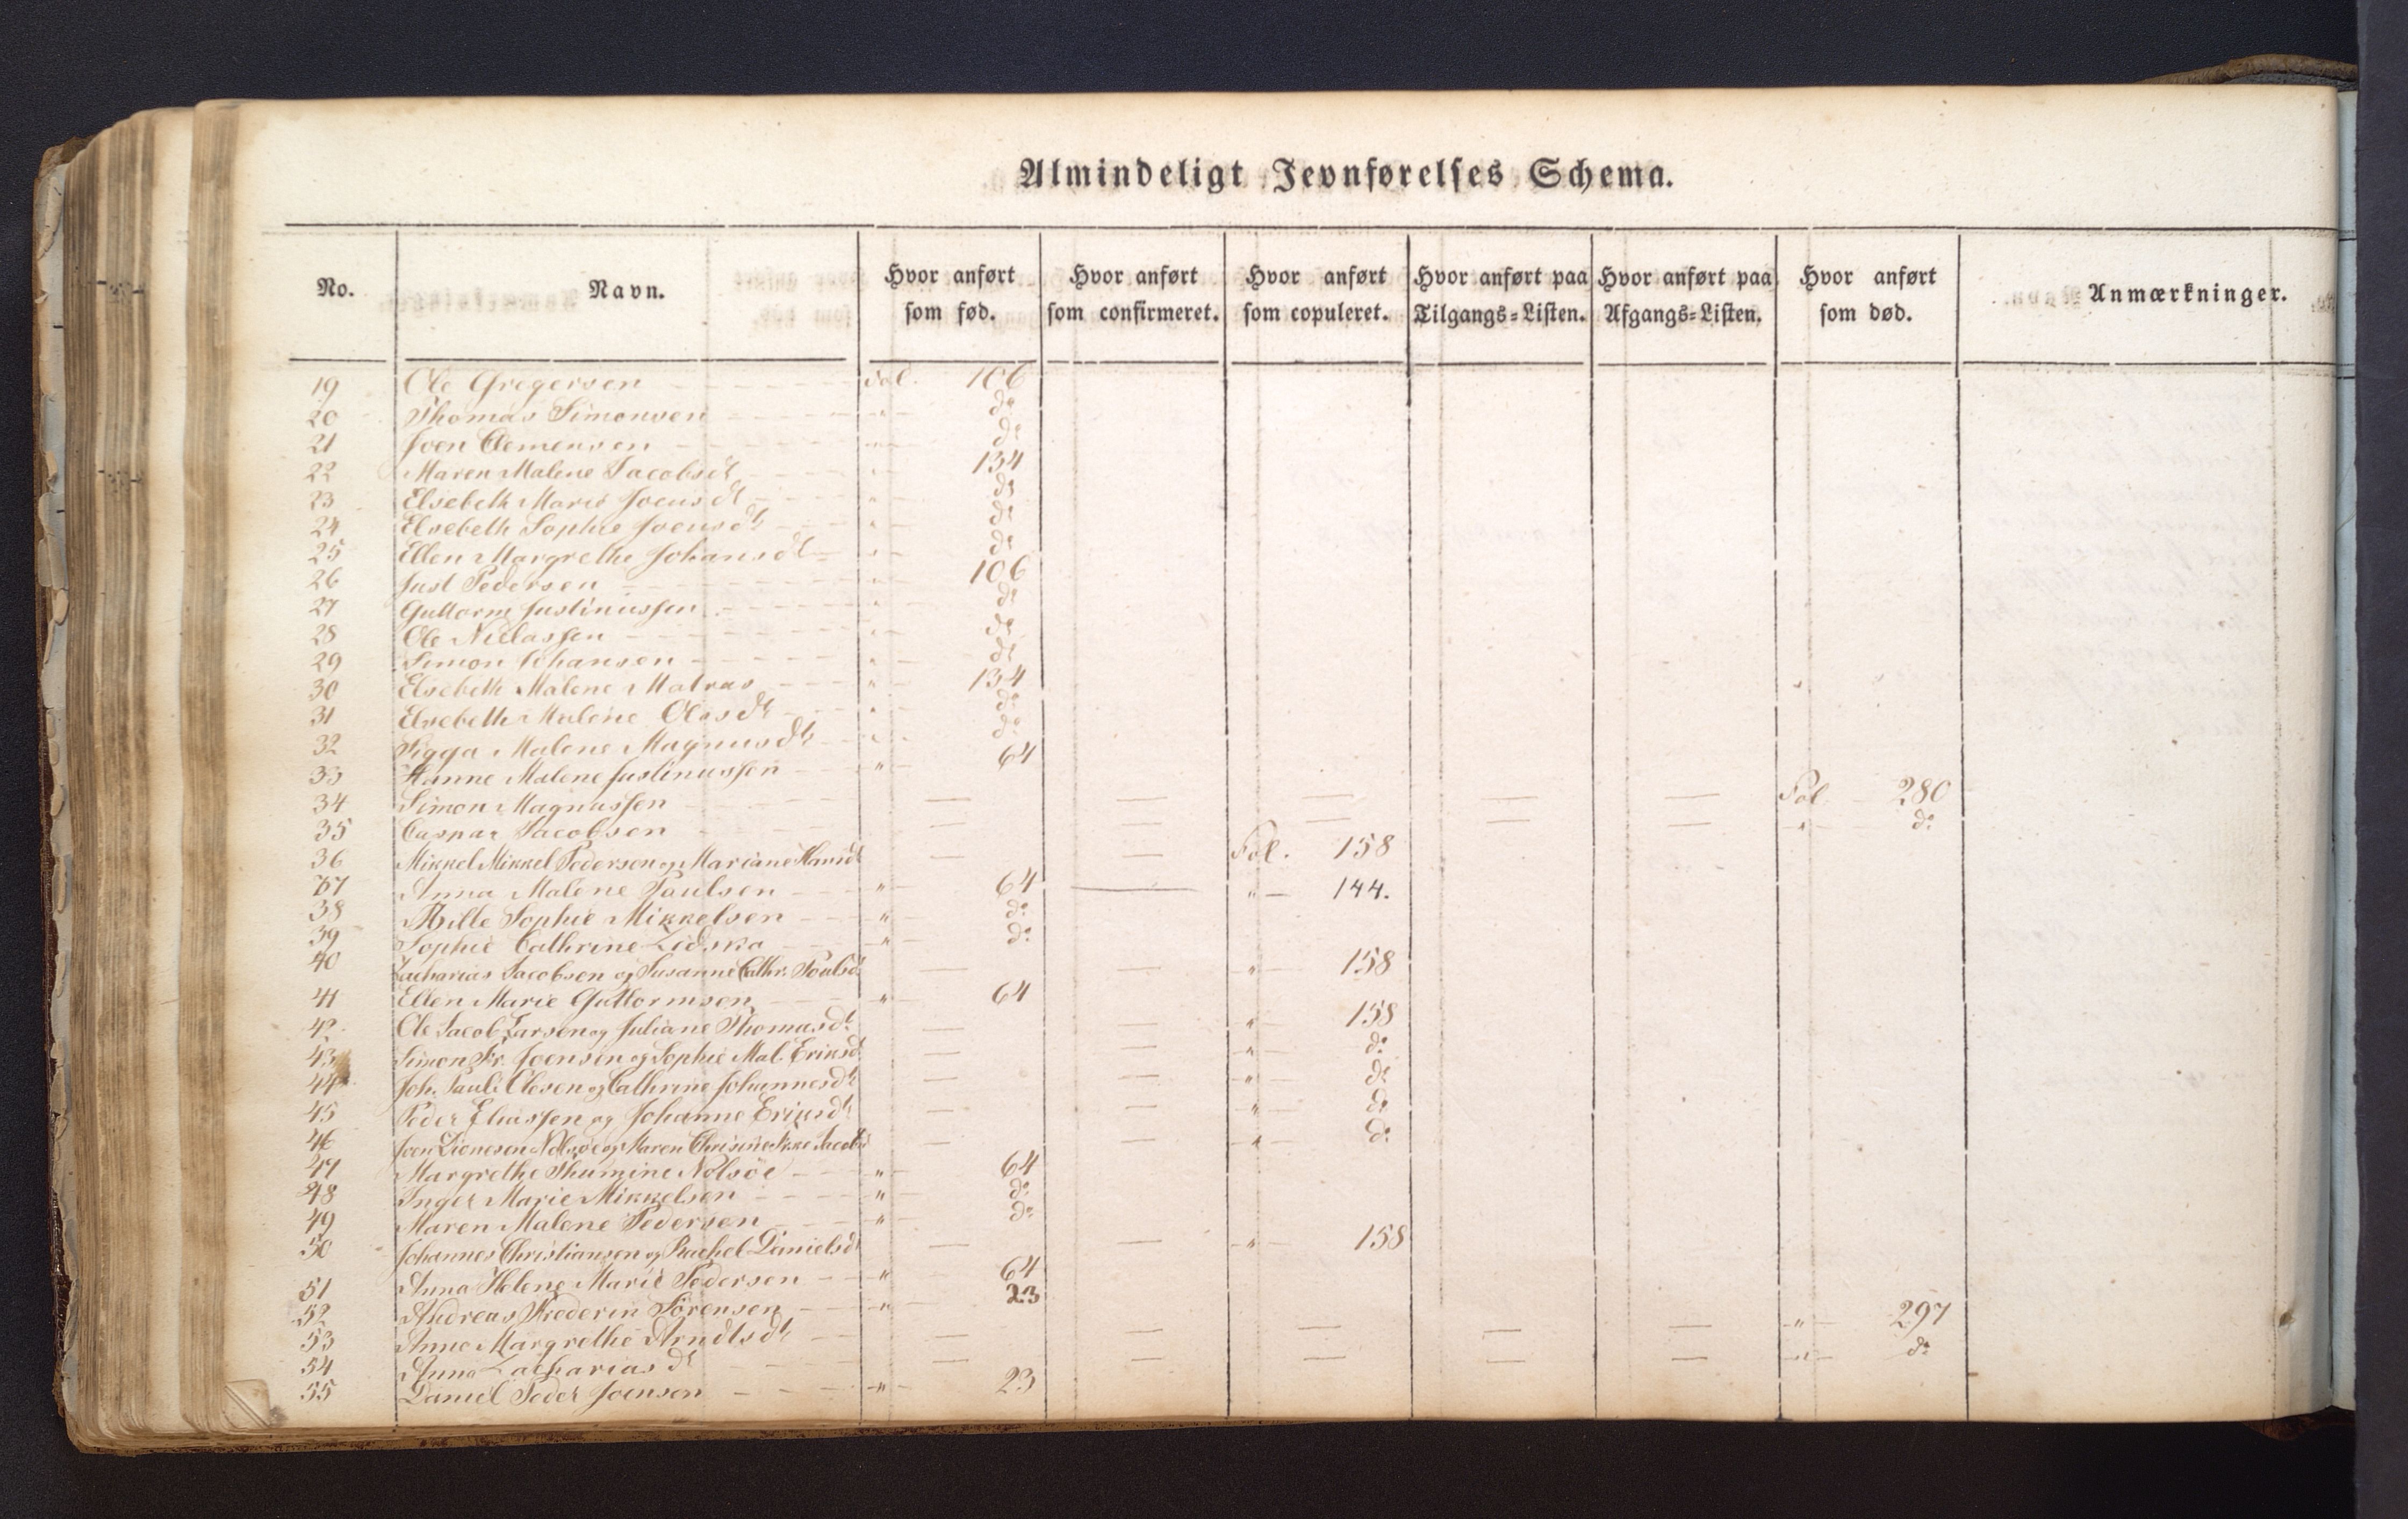 Almindeligt Jevnførelses Schema.
No. Navn. Hvor anført som fød. Hvor anført som confirmeret. Hvor anført som copuleret. Hvor anført paa Tilgangs-Listen. Hvor anført paa Afgangs-Listen. Hvor anført som død. Anmærkninger.
19 Ole Gregersen Fol. 106
20 Thomas Simonsen " do
21 Joen Clemensen " do
22 Maren Malene Jacobsdt " 134
23 Elsebeth Marie Joensdt " do
24 Elsebeth Sophie Joensdt " do
25 Ellen Margrethe Johansdt " do
26 Just Pedersen " 106
27 Guttorm Justinussen " do
28 Ole Niclassen " do
29 Simon Johansen " do
30 Elsebeth Malene Matras " 134
31 Elsebeth Malene Olesdt " do
32 Sigga Malene Magnusdt " do
33 Hanne Malene Justinussen " 64
34 Simon Magnussen — — — — — Fol 280
35 Caspar Jacobsen — — — — — " do
36 Mikkel Mikkel Pedersen og Mariane Hansdt — — Fol. 158
37 Anna Malene Paulsen " 64 — " 144.
38 Bille Sophie Mikkelsen " do
39 Sophie Cathrine Lidska " do
40 Zacharias Jacobsen og Susanne Cathr. Poulsdt — — " 158
41 Ellen Marie Guttormsen " 64
42 Ole Jacob Larsen og Juliane Thomasdt — — " 158
43 Simon Fr. Joensen og Sophie Mal. Eriksdt — — " do
44 Joh. Pauli Olesen og Cathrine Johannesdt — — " do
45 Peder Eliassen og Johanne Eriksdt — — " do
46 Joen Zionesen Nolsøe og Maren — — " do
47 Margrethe Thumine Nolsöe " 64
48 Inger Marie Mikkelsen " do
49 Maren Malene Pedersen " do
50 Johannes Christiansen og Rachel Danielsdt — — " 158
51 Anna Helene Marie Pedersen " 64
52 Andreas Frederik Sörensen " 23
53 Anne Margrethe Arndtsdt — — — — — " 297
54 Anna Zachariasdt — — — — — " do
55 Daniel Peder Joensen " 23